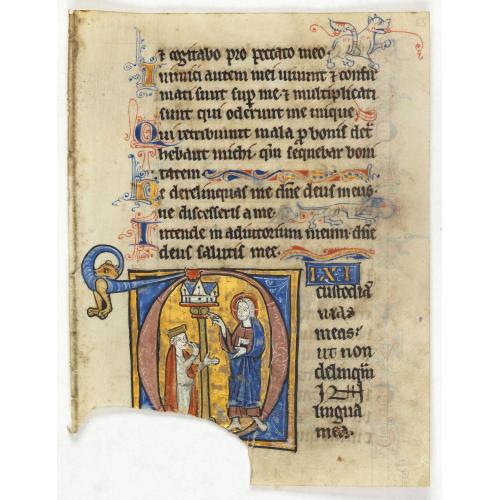 ⁊ cogitabo pro peccato meo.
Inimici autem mei uiuunt ⁊ confir
mati sunt sup me ⁊ multiplicati
sunt qui oderunt me inique.
Qui retribuunt mala p bonis det̾
hebant michi qm̄ sequebar boni
tatem
Ne derelinquas me dn̄e deus meus.
ne discesseris a me.
Intende in adiutorium meum dn̄e
deus salutis mee.
DIXI
custodiā
uias
meas:
ut non
delinquā
in
lingua
mea.